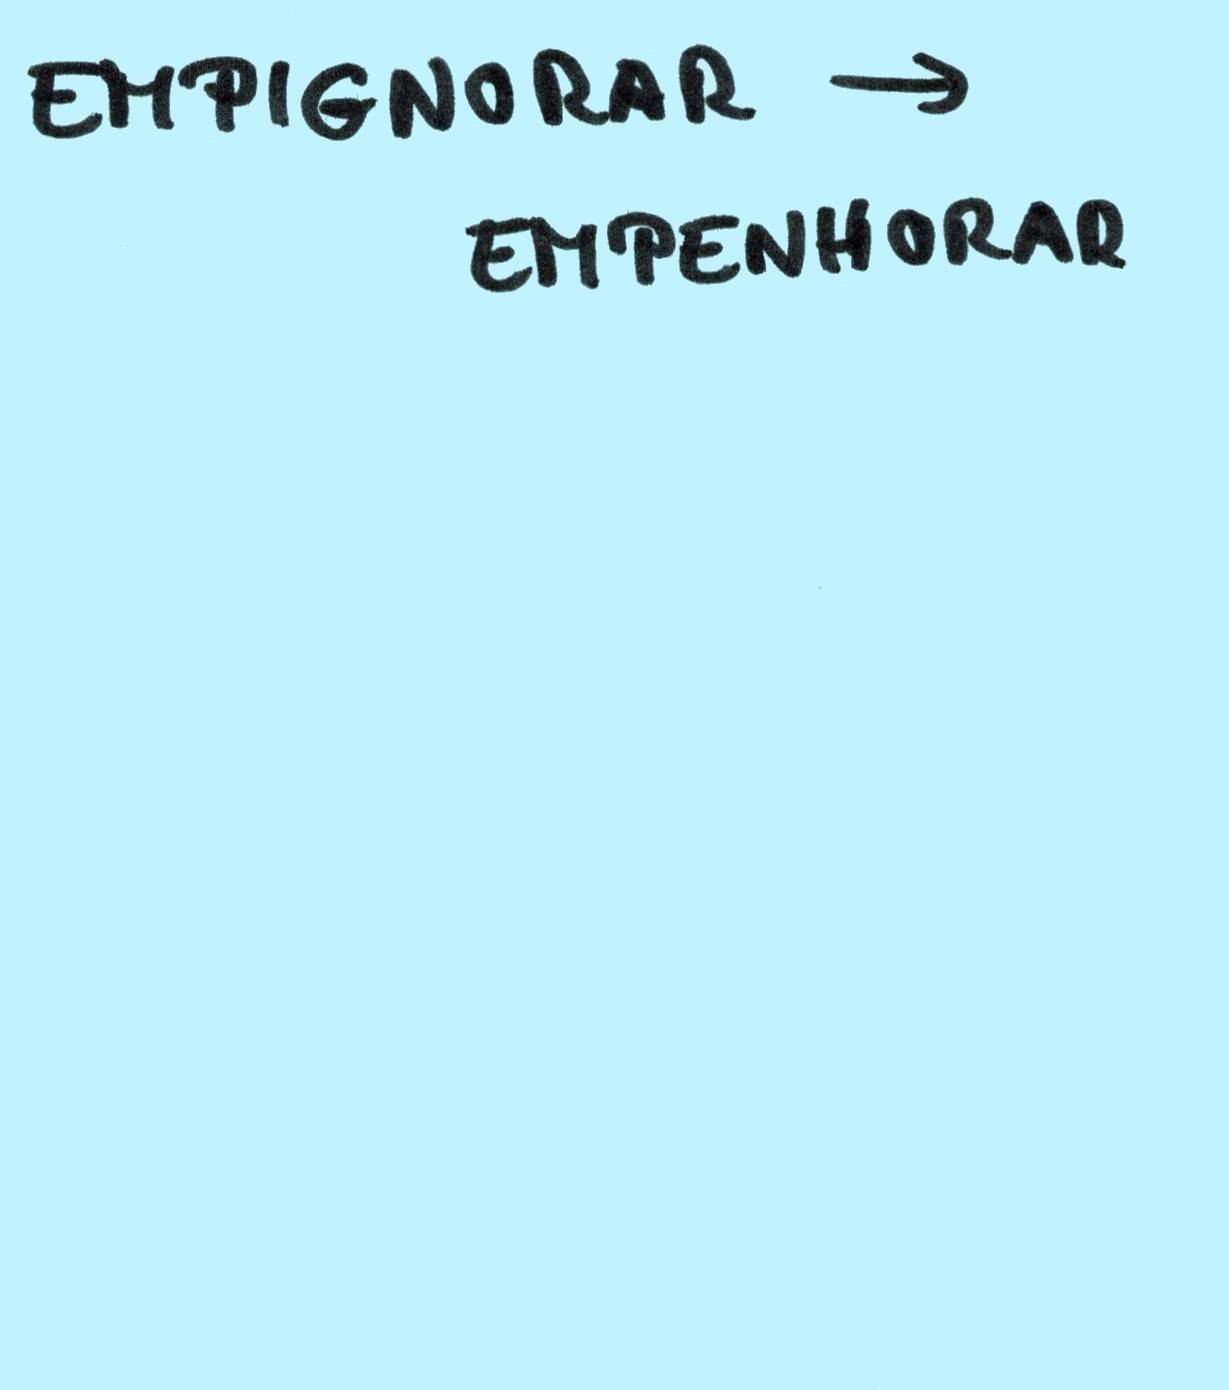 EMPIGNORAR →
EMPENHORAR